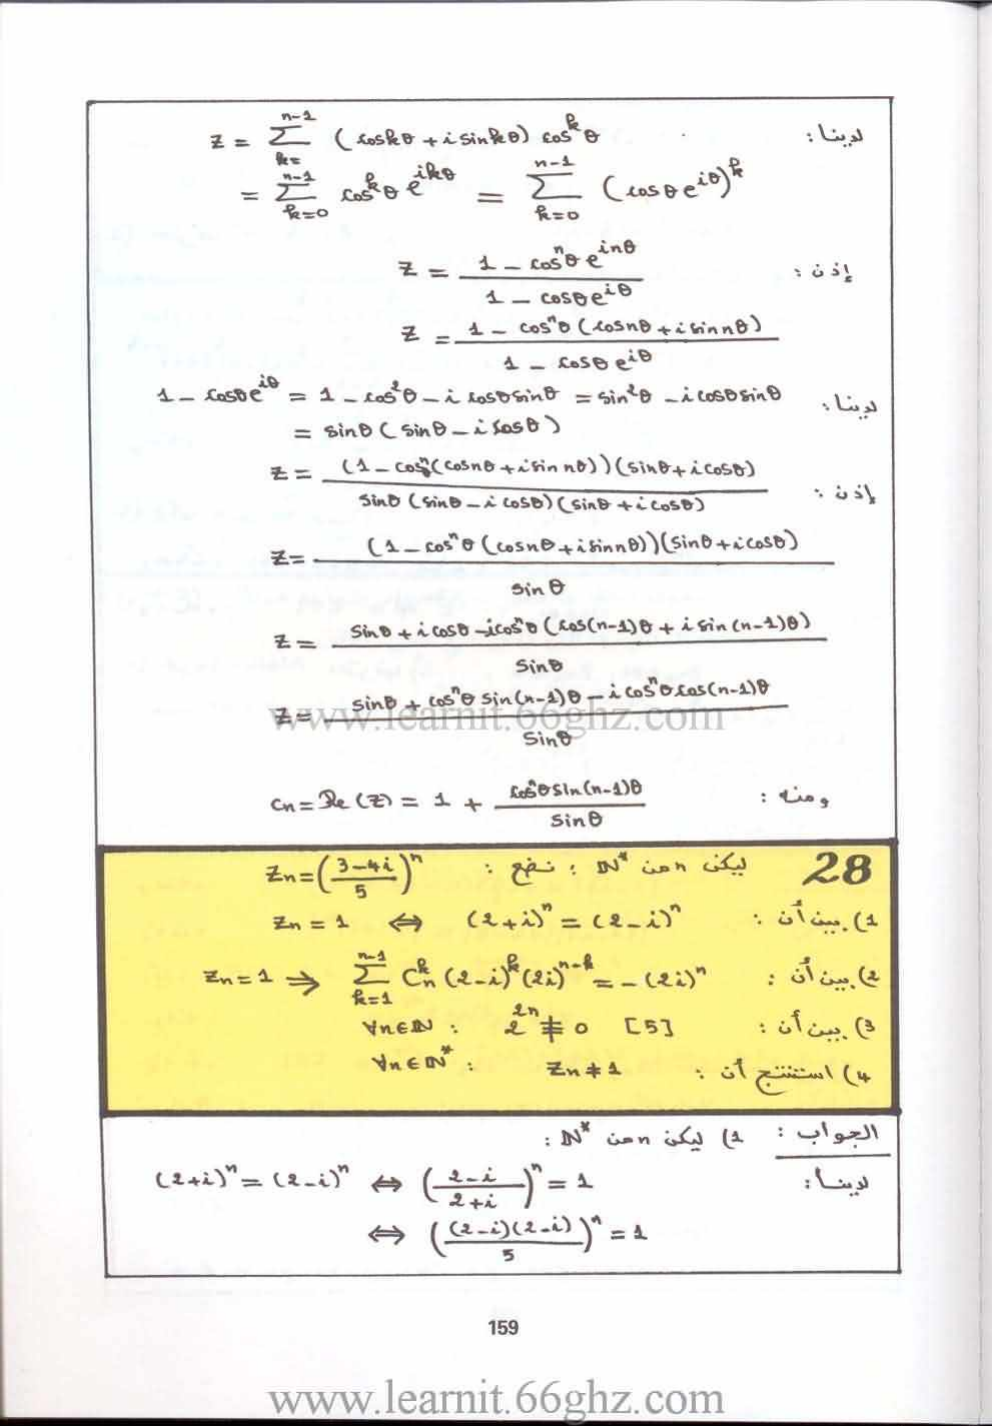 لدينا : z = \sum_{k=}^{n-1} (cos kθ + i sin kθ) cos^k θ
= \sum_{k=0}^{n-1} cos^k θ e^{ikθ} = \sum_{k=0}^{n-1} (cosθ e^{iθ})^k
إذن : z = \frac{1 - cos^n θ e^{inθ}}{1 - cosθ e^{iθ}}
z = \frac{1 - cos^n θ (cos nθ + i sin nθ)}{1 - cosθ e^{iθ}}
لدينا : 1 - cosθ e^{iθ} = 1 - cos^2 θ - i cosθ sinθ = sin^2 θ - i cosθ sinθ
= sinθ (sinθ - i cosθ)
إذن : z = \frac{(1 - cos^n (cos nθ + i sin nθ))(sinθ + i cosθ)}{sinθ (sinθ - i cosθ)(sinθ + i cosθ)}
z = \frac{(1 - cos^n θ (cos nθ + i sin nθ))(sinθ + i cosθ)}{sinθ}
z = \frac{sinθ + i cosθ - i cos^n θ (cos(n-1)θ + i sin(n-1)θ)}{sinθ}
z = \frac{sinθ + cos^n θ sin(n-1)θ - i cos^n θ cos(n-1)θ}{sinθ}
www.learnit.66ghz.com
ومنه : c_n = Re(z) = 1 + \frac{cos^n θ sin(n-1)θ}{sinθ}
28 ليكن n من ℕ* : نضع : z_n = (\frac{3-4i}{5})^n
1) بين أن : z_n = 1 ⇔ (2+i)^n = (2-i)^n
2) بين أن : z_n = 1 ⇒ \sum_{k=1}^{n-1} C_n^k (2-i)^k (2i)^{n-k} = -(2i)^n
3) بين أن : ∀n∈ℕ : 2^{2n} ≢ 0 [5]
4) استنتج أن : ∀n∈ℕ* : z_n ≠ 1
الجواب : 1) ليكن n من ℕ* :
لدينا : (2+i)^n = (2-i)^n ⇔ (\frac{2-i}{2+i})^n = 1
⇔ (\frac{(2-i)(2-i)}{5})^n = 1
159
www.learnit.66ghz.com